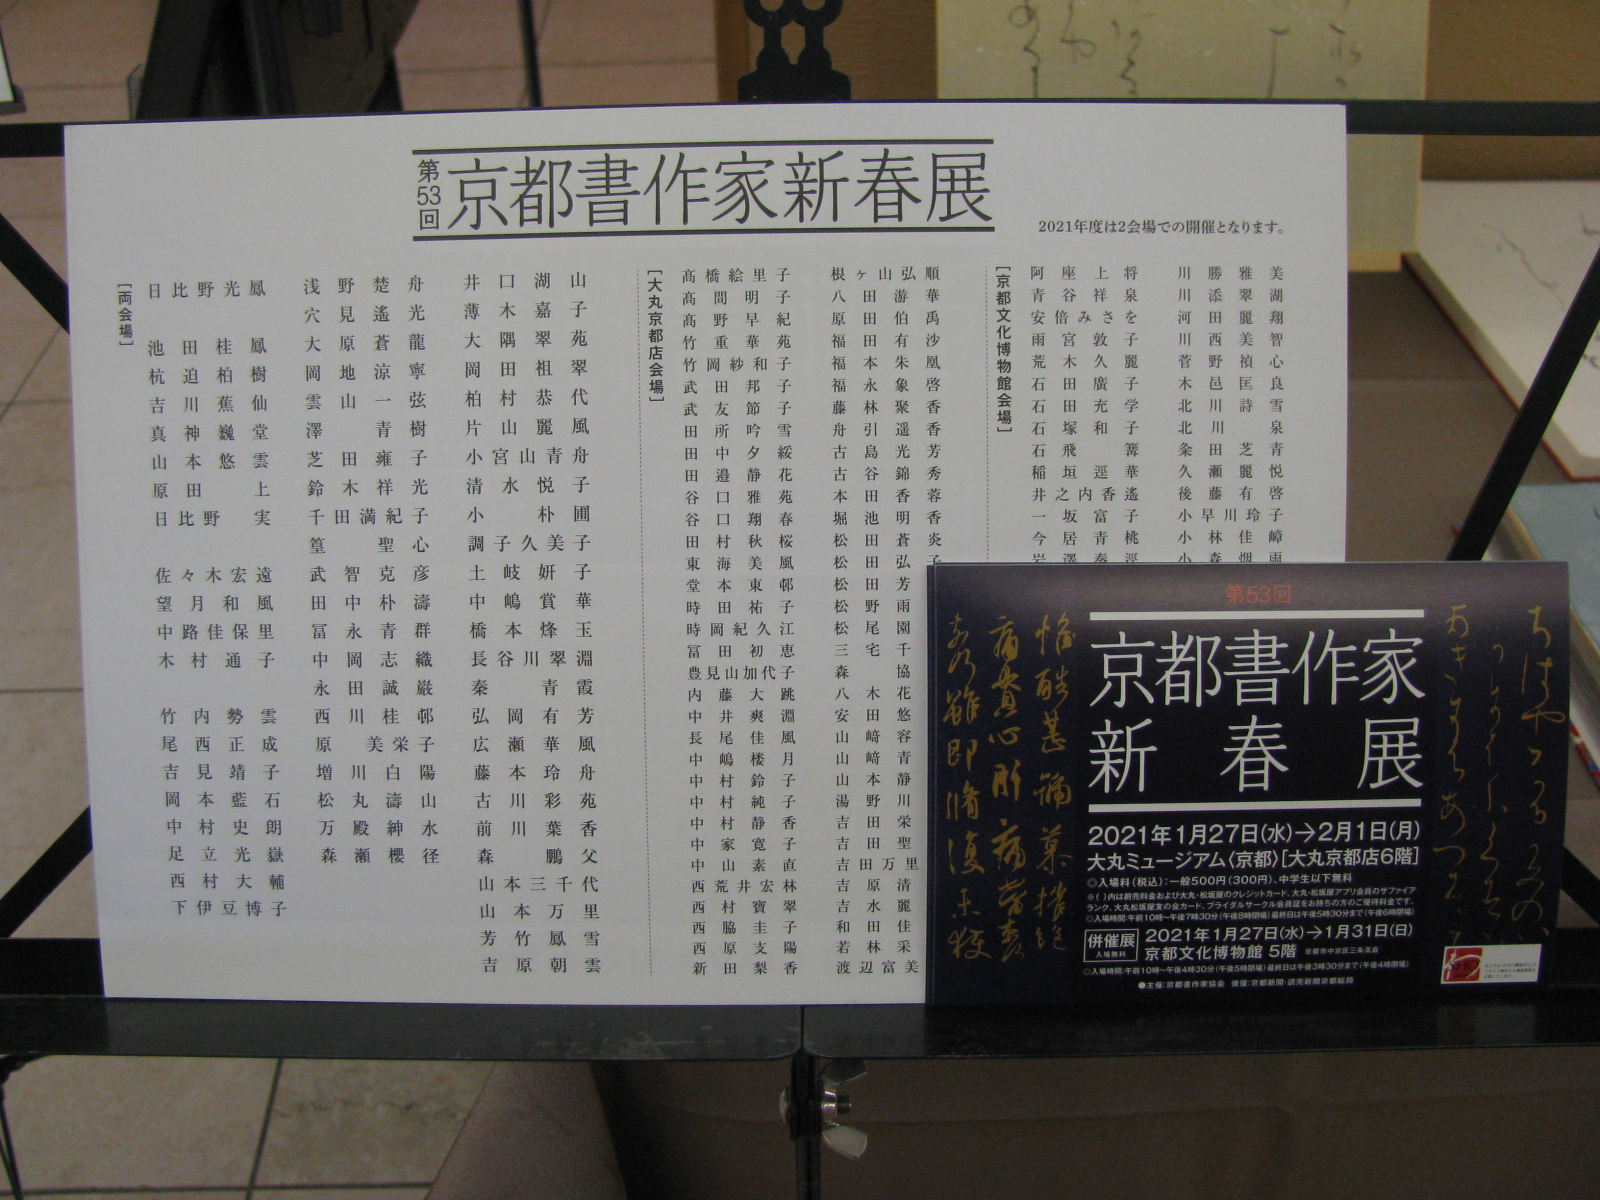 第53回
京都書作家新春展
2021年度は2会場での開催となります。
[両会場]
日比野光鳳
池田桂鳳
杭迫柏樹
吉川蕉仙
真神巍堂
山本悠雲
原田上
日比野実
佐々木宏遠
望月和風
中路佳保里
木村通子
竹内勢雲
尾西正成
吉見靖子
岡本藍石
中村史朗
足立光嶽
西村大輔
下伊豆博子
浅野楚舟
穴見遙光
大原蒼龍
岡地涼寧
雲山一弦
澤青樹
芝田雍子
鈴木祥光
千田満紀子
篁聖心
武智克彦
田中朴濤
冨永青群
中岡志織
永田誠巌
西川桂邨
原美栄子
増川白陽
松丸濤山
万殿紳水
森瀬櫻径
井口湖山
薄木嘉子
大隅翠苑
岡田祖翠
柏村恭代
片山麗風
小宮山青舟
清水悦子
小朴圃
調子久美子
土岐妍子
中嶋賞華
橋本烽玉
長谷川翠淵
秦青霞
弘岡有芳
広瀬華風
藤本玲舟
古川彩苑
前川葉香
森鵬父
山本三千代
山本万里
芳竹鳳雪
吉原朝雲
[大丸京都店会場]
髙橋絵里子
髙間明子
髙野早紀
竹重華苑
竹岡紗和子
武田邦子
武友節子
田所吟雪
田中夕綏
田邉静花
谷口雅苑
谷口翔春
田村秋桜
東海美風
堂本東邨
時田祐子
時岡紀久江
冨田初恵
豊見山加代子
内藤大跳
中井爽淵
長尾佳風
中嶋楼月
中村鈴子
中村純子
中村静香
中家寛子
中山素直
西荒井宏林
西村寶翠
西脇圭子
西原支陽
新田梨香
根ヶ山弘順
八田游華
原田伯禹
福田有沙
福本朱凰
福永象啓
藤林聚香
舟引遥香
古島光芳
古谷錦秀
本田香蓉
堀池明香
松田蒼炎
松田弘子
松田芳
松野雨
松尾園
三宅千
森協
八木花
安田悠
山﨑容
山﨑青
山本静
湯野川
吉田栄
吉田聖
吉田万里
吉原清
吉水麗
和田佳
若林采
渡辺富美
[京都文化博物館会場]
阿座上将
青谷祥泉
安倍みさを
雨宮敦子
荒木久麗
石田廣子
石田充学
石塚和子
石飛篝
稲垣遥華
井之内香遙
一坂富子
今居青桃
岩澤秦涇
川勝雅美
川添翠湖
河田麗翔
川西美智
菅野禎心
木邑匡良
北川詩雪
北川泉
粂田芝青
久瀬麗悦
後藤有啓
小早川玲子
小林佳嶂
小森畑雨
第53回
京都書作家
新春展
2021年1月27日(水)→2月1日(月)
大丸ミュージアム〈京都〉[大丸京都店6階]
◎入場料(税込):一般500円(300円)、中学生以下無料
※( )内は前売料金および大丸・松坂屋のクレジットカード、大丸・松坂屋アプリ会員のサファイア
ランク、大丸松坂屋友の会カード、ブライダルサークル会員証をお持ちの方のご優待料金です。
◎入場時間:午前10時〜午後7時30分(午後8時閉場)最終日は午後5時30分まで(午後6時閉場)
併催展
入場無料
2021年1月27日(水)→1月31日(日)
京都文化博物館 5階 京都市中京区三条高倉
◎入場時間:午前10時〜午後4時30分(午後5時閉場)最終日は午後3時30分まで(午後4時閉場)
●主催:京都書作家協会 後援:京都新聞・読売新聞京都総局